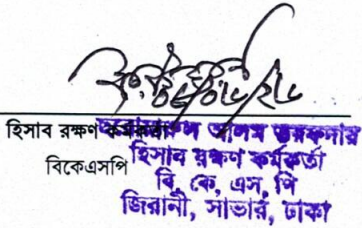 হিসাব রক্ষণ কর্মকর্তা
বিকেএসপি
আলম তরফদার
হিসাব রক্ষণ কর্মকর্তা
বি, কে, এস, পি
জিরানী, সাভার, ঢাকা